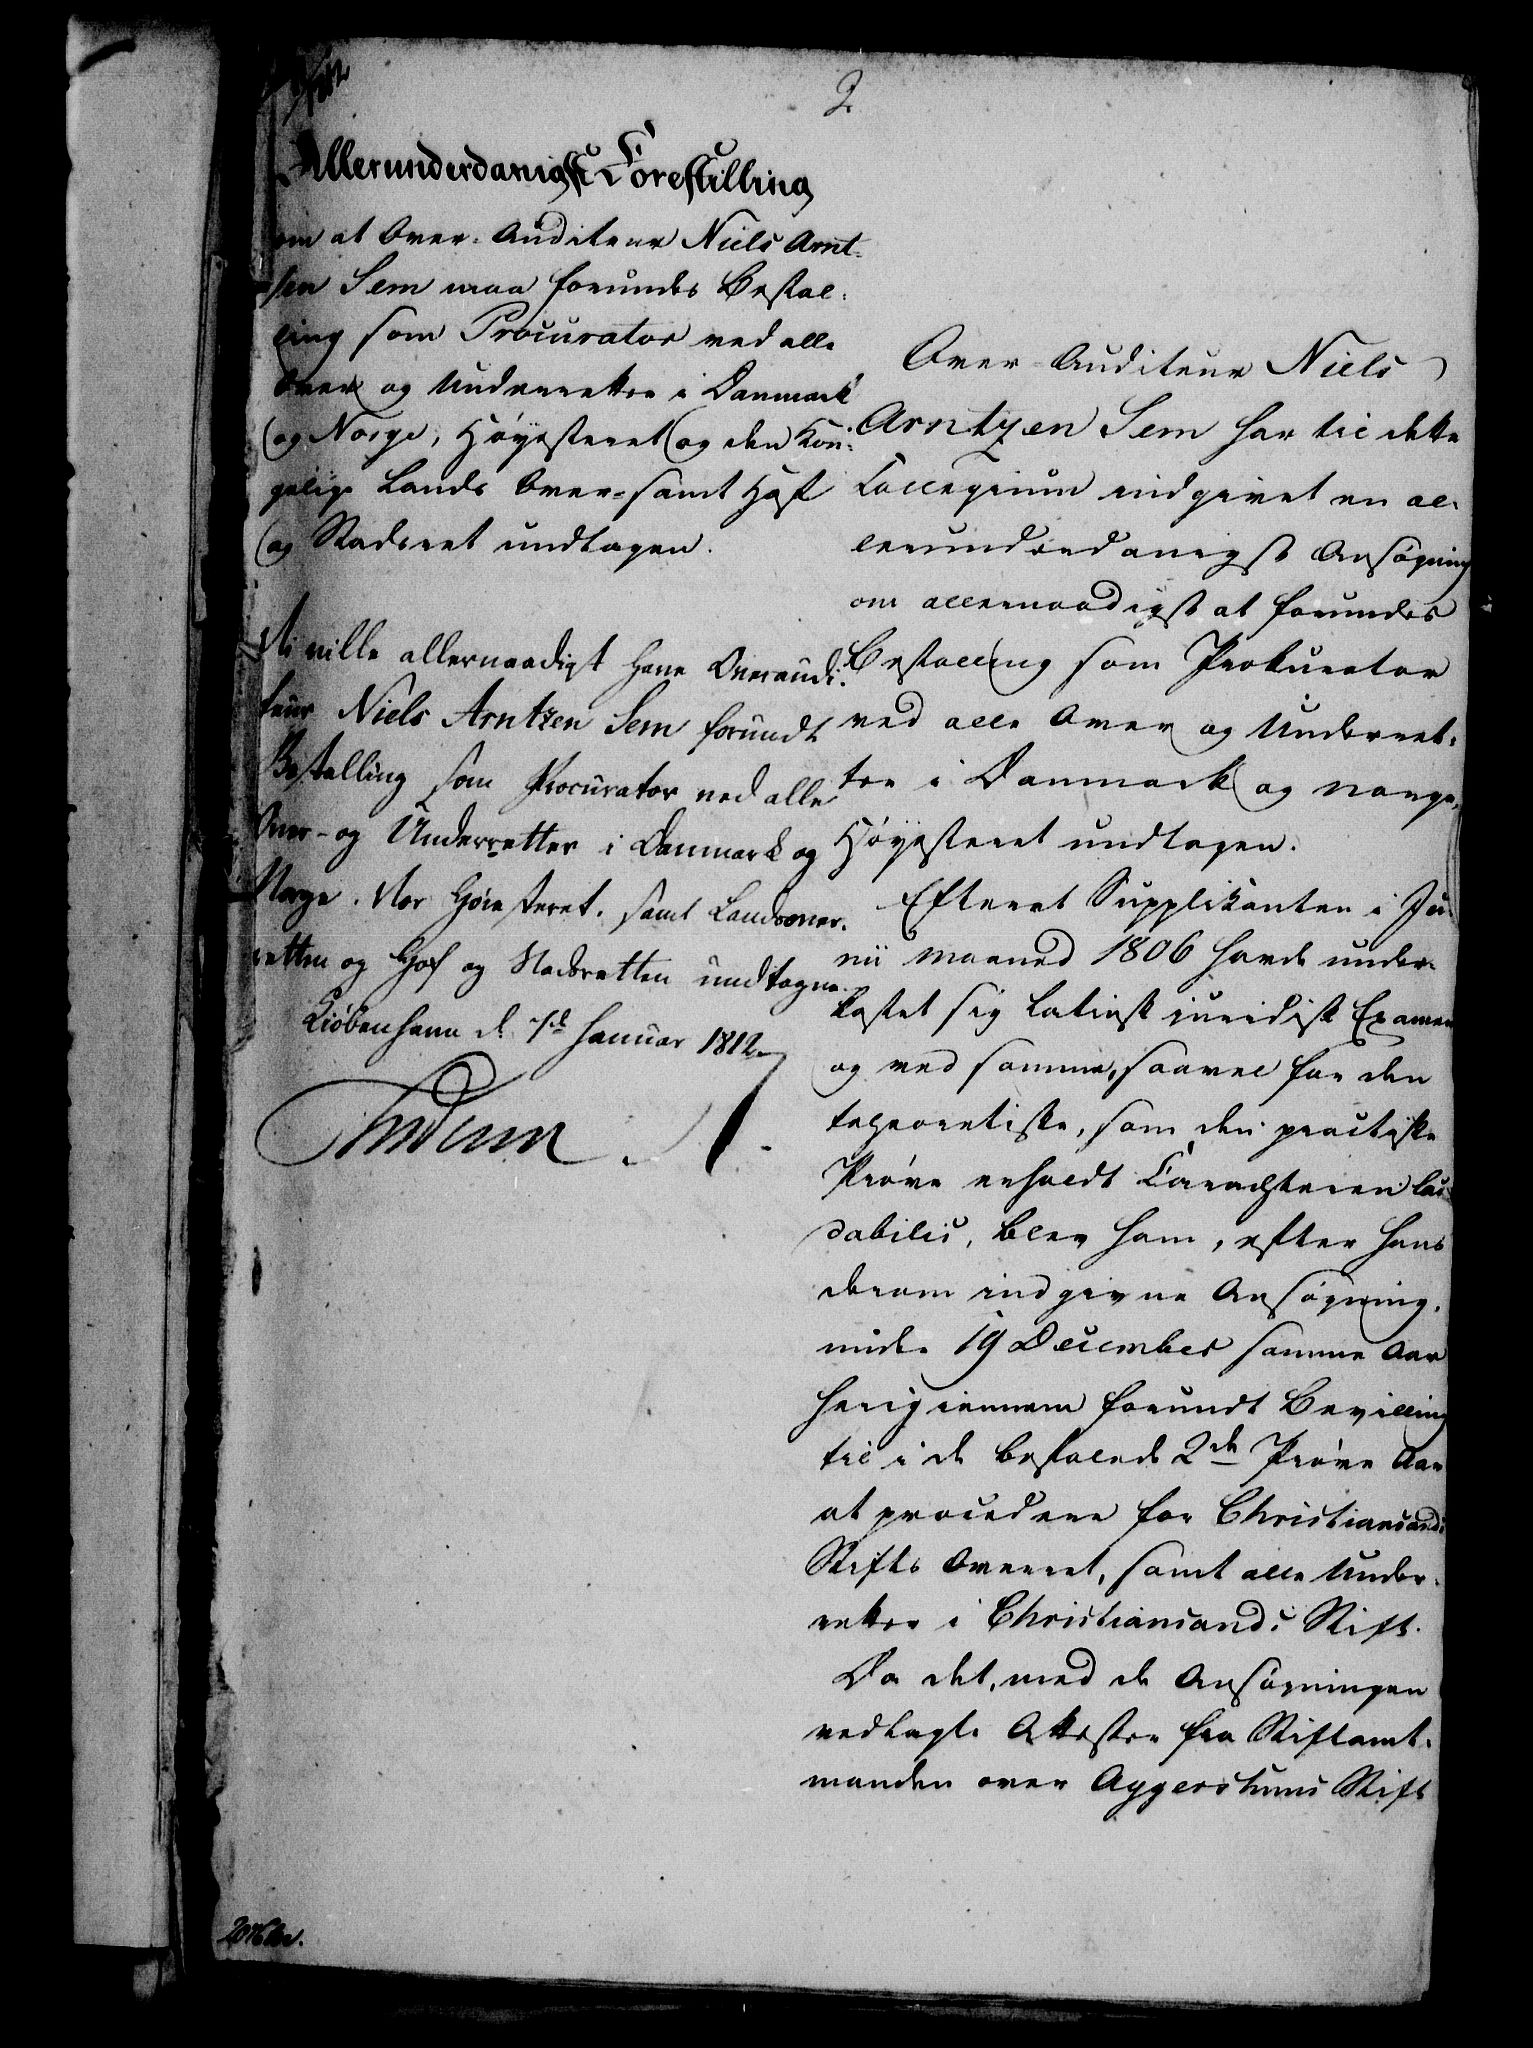 2.
Allerunderdanigst Forestilling
om at Over-Auditeur Niels Arnt-
sen Sem maa forundes Bestal-
ling som Procurator ved alle
Over og Underretter i Danmark
og Norge, Høyesteret og den Kon-
gelige Lands Over- samt Hof
og Stadsret undtagen.
Vi ville allernaadigst have Overaudi-
teur Niels Arntzen Sem forundt
Bestalling som Procurator ved alle
Over- og Underretter i Danmark og
Norge. Vor Høiesteret, samt Landsover-
retten og Hof og Stadsretten undtagne.
Kiøbenhavn d. 7d Januar 1812.
Over-Auditeur Niels
Arntzen Sem har til dette
Collegium indgivet en al-
lerunderdanigst Ansøgning
om allernaadigst at forundes
Bestalling som Prokurator
ved alle Over og Underret-
ter i Danmark og Norge,
Høyesteret undtagen.
Efteret Supplikanten i Ju-
nii Maaned 1806 havde under-
kastet sig latinsk juridisk Examen
og ved samme, saavel for den
theoretiske, som den practiske
Prøve erholdt Carachteren lau-
dabilis, blev ham, efter hans
derom indgivne Ansøgning,
under 19 December samme Aar
herigiennem forundt Bevilling
til i de befalede 2de Prøve Aar
at procedere for Christiansands
Stifts Overret, samt alle Under-
retter i Christiansands Stift.
Da det, med de Ansøgningen
vedlagte Attester fra Stiftamt-
manden over Aggershuus Stift